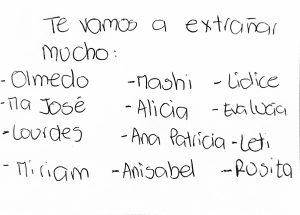 Te vamos a extrañar
mucho:
-Olmedo -Mashi -Lidice
-Ma José -Alicia -Evalucia
-Lourdes -Ana Patricia -Leti
-Miriam -Anisabel -Rosita